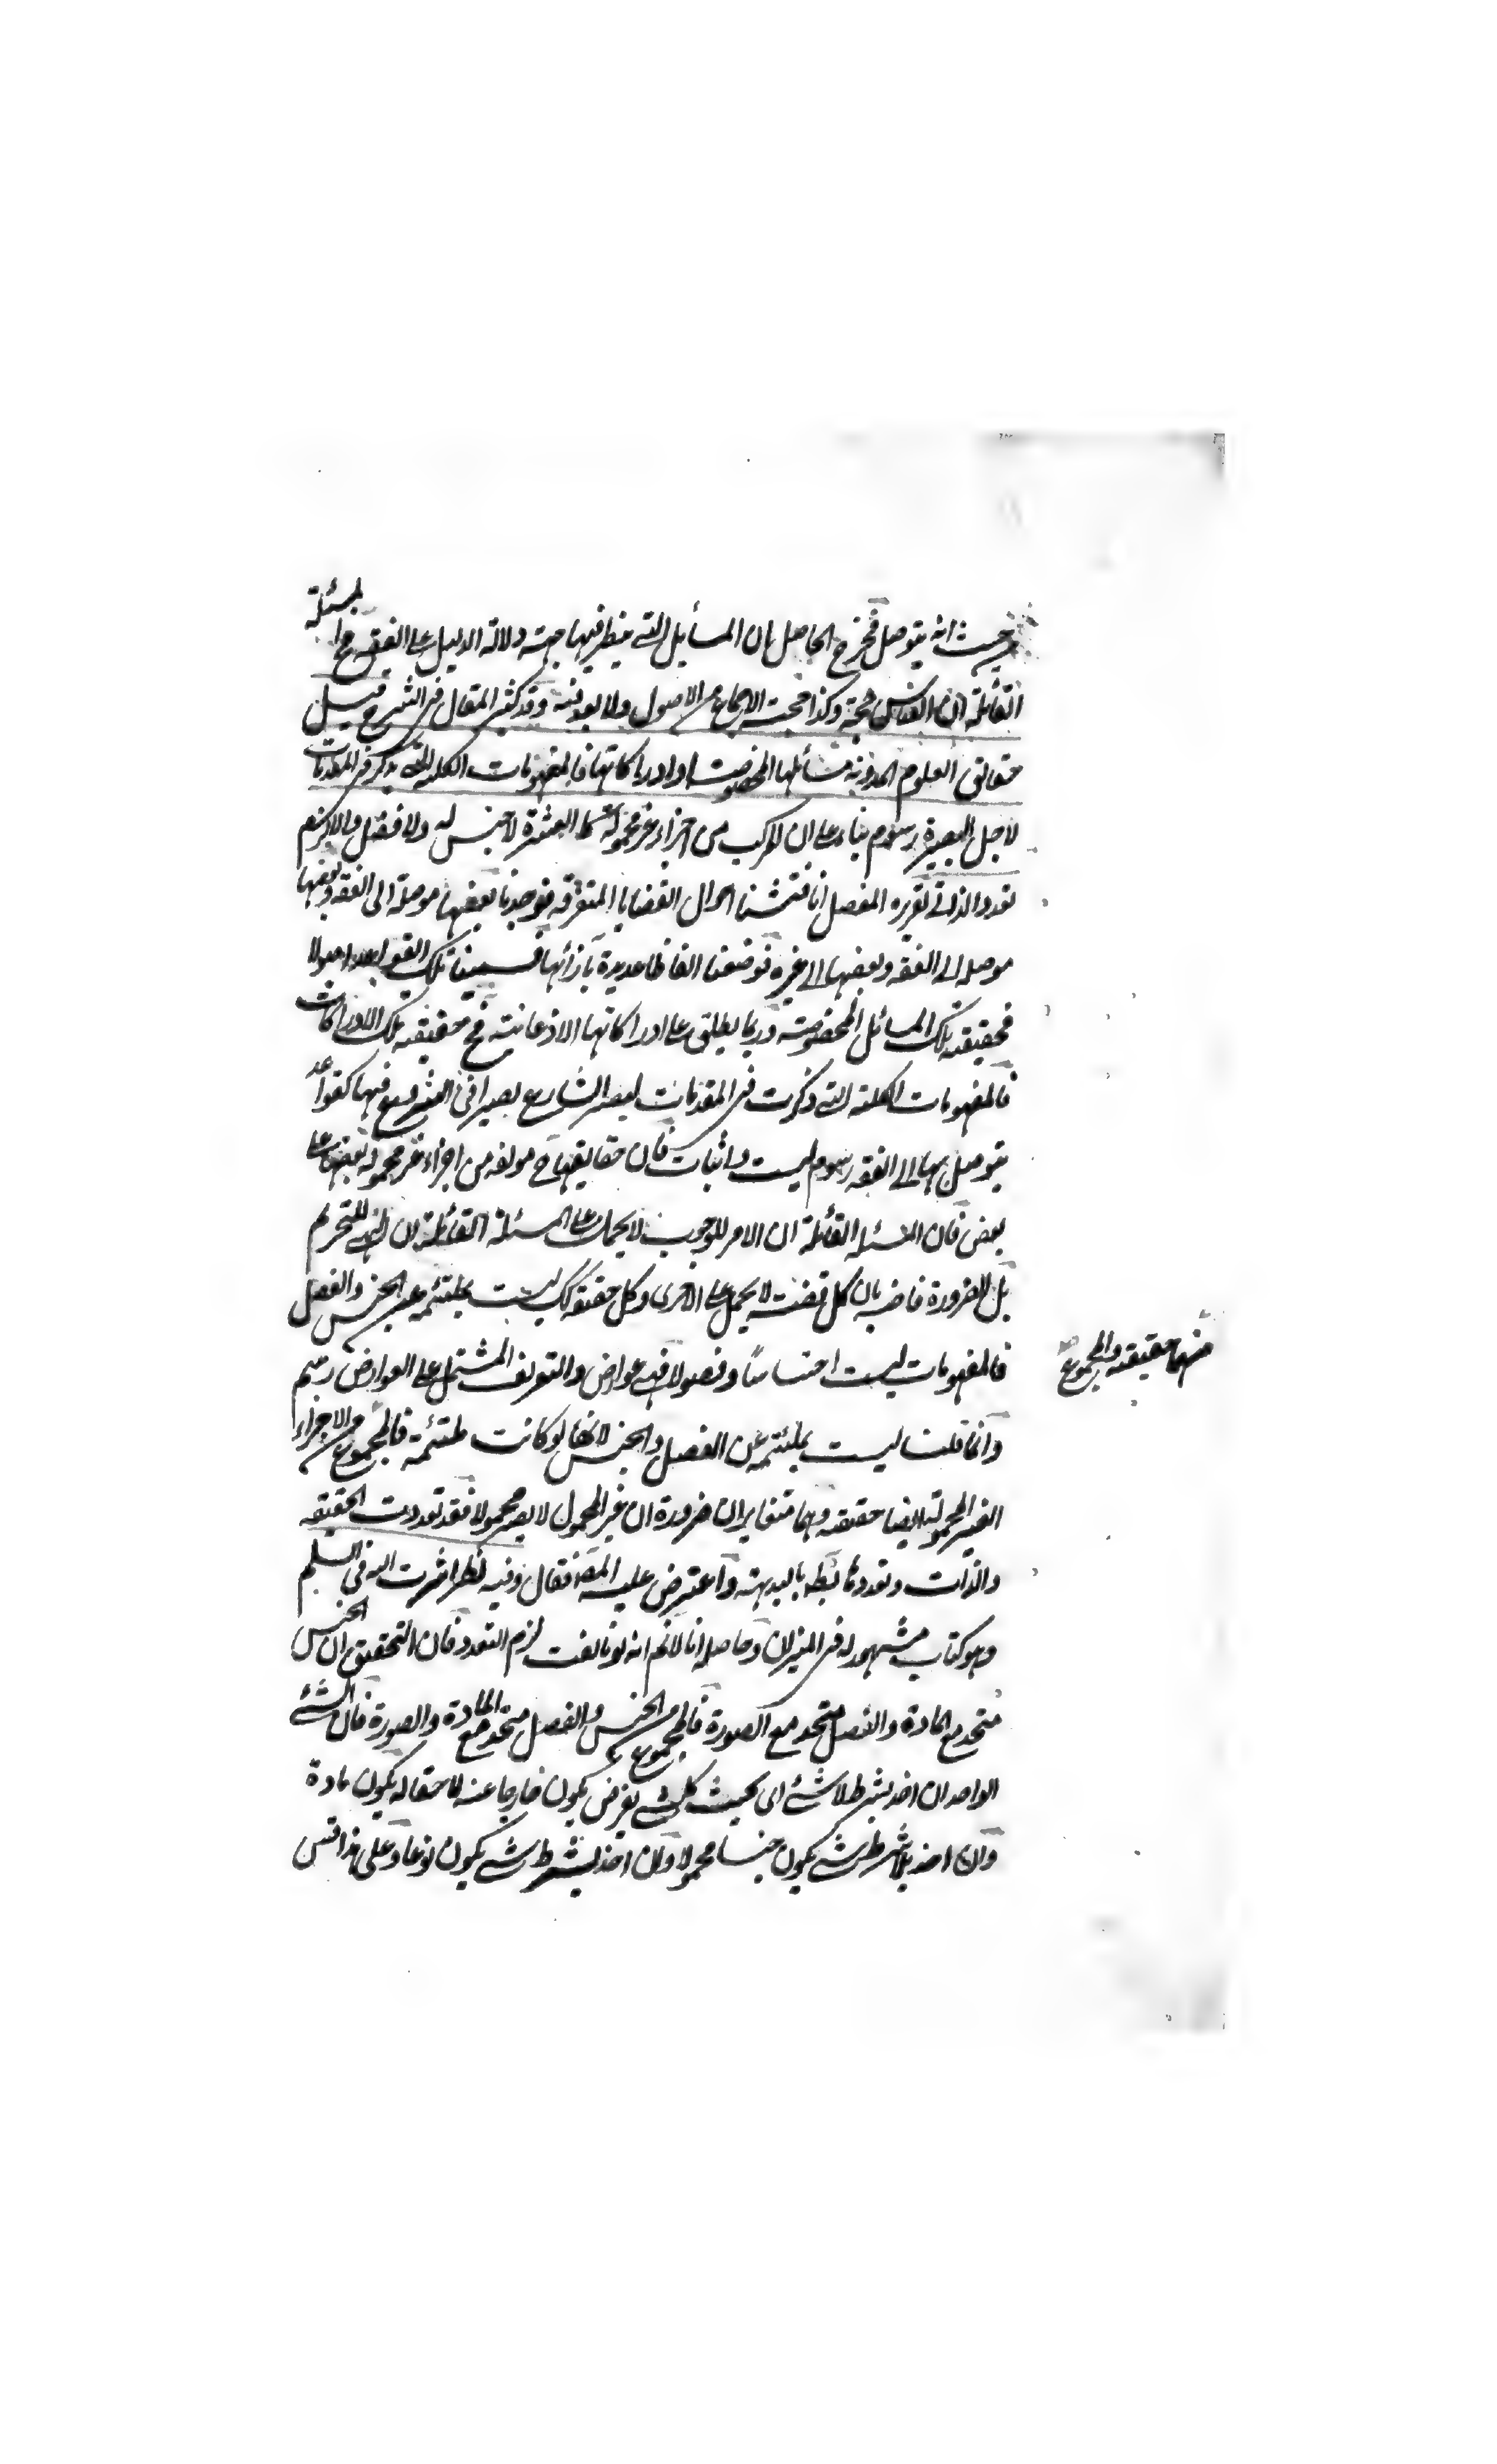 حيث انه يتوصل فخرج الحاصل ان المسائل التي ينظر فيها جهة دلالة الدليل على الفقه ح المسئلة
القائلة ان القياس حجة وكذا حجية الاجماع من الاصول ولا بعد فيه وقد كثر المقال في الشرح قيل
حقائق العلوم المدونة مسائلها المخصوصة او ادراكاتها فالمفهومات الكلية التي تذكر في المقدمات
لاجل البصيرة رسوم بناء على ان المركب من اجزاء غير محمولة كالعشرة لا جنس له ولا فصل والا لزم
تعدد الذاتي تقريره المفصل انا فتشنا احوال القضايا المتفرقة فوجدنا بعضها موصلة الى الفقه وبعضها
موصلة الى الفقه وبعضها الى غيره فوضعنا الفاظا عديدة بازائها فسمينا تلك القواعد اصولا
فحقيقته تلك المسائل المخصوصة وربما يطلق على ادراكاتها الاذعانية فح حقيقته تلك الادراكات
فالمفهومات الكلية التي ذكرت في المقدمات ليصير الشارع بصيرا في الشروع فيها كقواعد
يتوصل بها الى الفقه رسوم ليست ذاتيات فان حقايقها ح مولفة من اجزاء غير محمولة بعضها على
بعض فان المسئلة القائلة ان الامر للوجوب لا يحمل على المسئلة القائلة ان النهي للتحريم
بل الضرورة قاضية بان كل قضية لا يحمل على الاخرى وكل حقيقة كك ليست بملتئمة عن الجنس والفصل
فالمفهومات ليست اجناسا وفصولا فهي عوارض والتعريف المشتمل على العوارض رسم
وانما قلنا ليست بملتئمة عن الفصل والجنس لانها لو كانت ملتئمة فالمجموع من الاجزاء
منهما حقيقة والمجموع
الغير المحمولة ايضا حقيقة وهما متغايران ضرورة ان غير المحمول لا يصير محمولا فقد تعددت الحقيقة
والذات وتعددها بط بالبديهة واعترض عليه المصنف فقال وفيه نظر اشرت اليه في السلم
وهو كتاب مشهور له في الميزان وحاصله انا لا نم انه لو تالفت لزم التعدد فان التحقيق ان الجنس
متحد مع المادة والفصل متحد مع الصورة فالمجموع من الجنس والفصل متحد مع المادة والصورة فان الشئ
الواحد ان اخذ بشرط لا شئ اى بحيث كل شئ يفرض يكون خارجا عنه لاحقا له يكون مادة
وان اخذ بلا شرط شئ يكون جنسا محمولا وان اخذ بشرط شئ يكون نوعا وعلى هذا قس